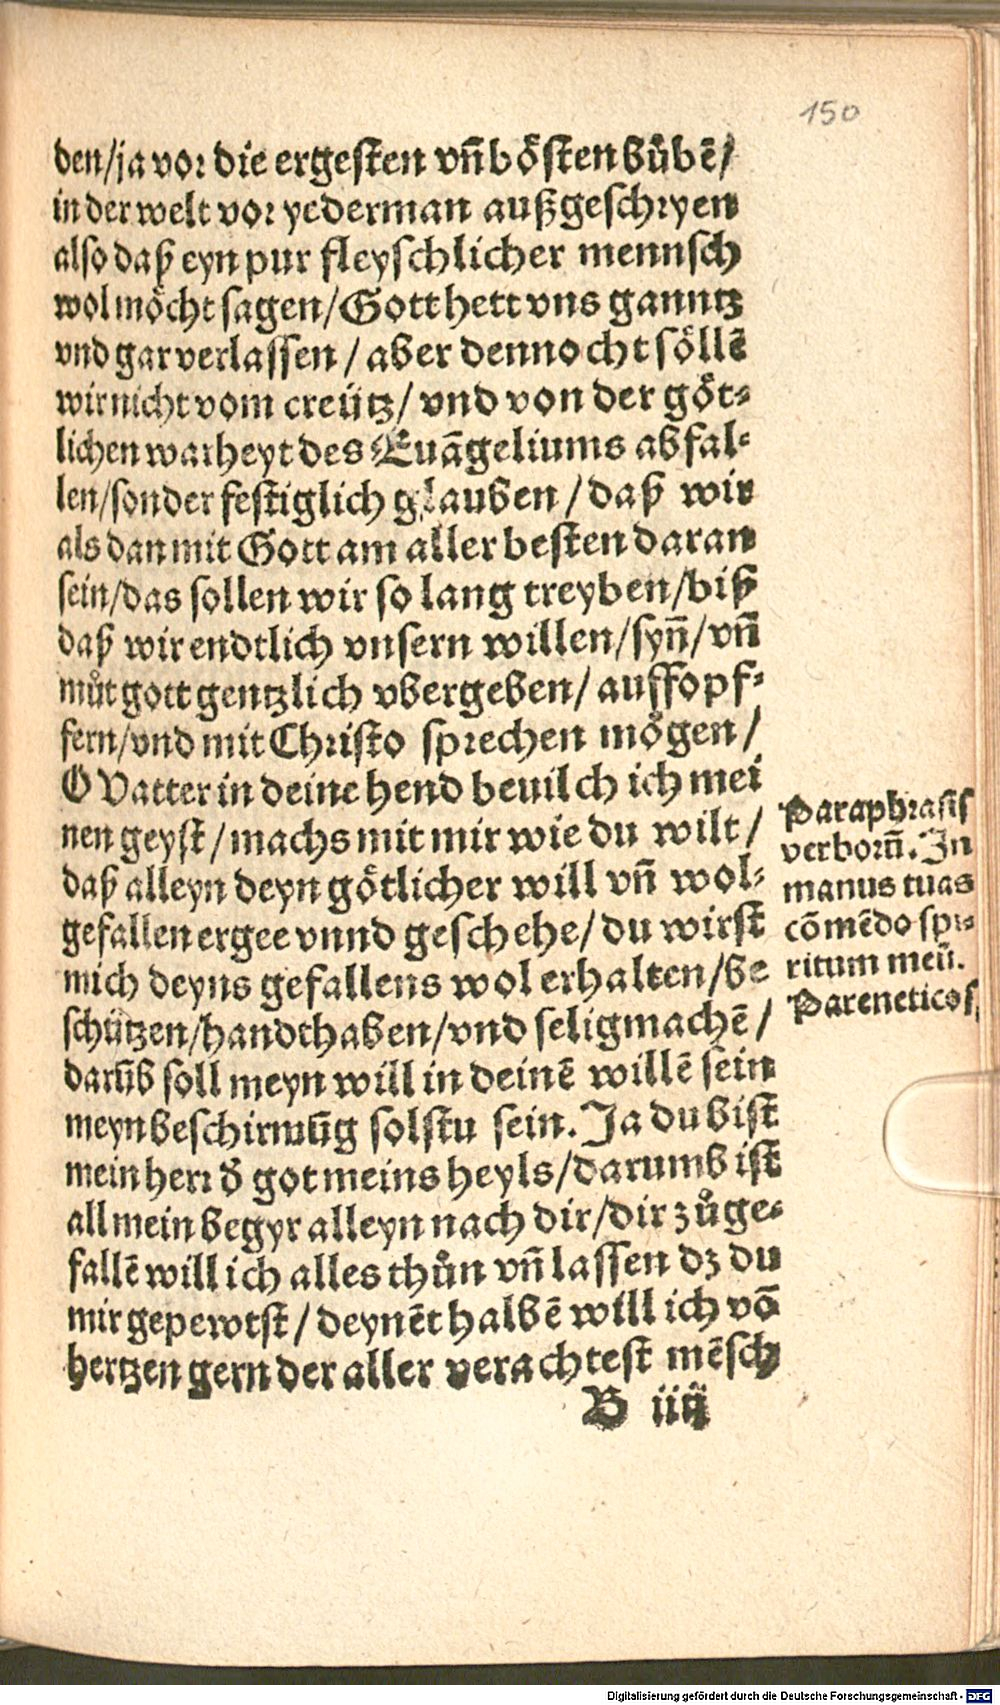 150
den/ja vor die ergesten vñ bösten bůbẽ/
in der welt vor yederman außgeschryen
also daß eyn pur fleyschlicher mennsch
wol möcht sagen/Gott hett vns ganntz
vnd gar verlassen/aber dennocht söllẽ
wir nicht vom creütz/vnd von der göt⸗
lichen warheyt des Euãgeliums abfal⸗
len/sonder festiglich glauben/daß wir
als dan mit Gott am aller besten daran
sein/das sollen wir so lang treyben/biß
daß wir endtlich vnsern willen/syñ/vñ
můt gott gentzlich vbergeben/auffopf⸗
fern/vnd mit Christo sprechen mögen/
O Vatter in deine hend beuilch ich mei
nen geyst/machs mit mir wie du wilt/
daß alleyn deyn götlicher will vñ wol⸗
gefallen ergee vnnd geschehe/du wirst
mich deyns gefallens wol erhalten/be
schützen/handthaben/vnd seligmachẽ/
darũb soll meyn will in deinẽ willẽ sein
meyn beschirmũg solstu sein. Ja du bist
mein herr d̕ got meins heyls/darumb ist
all mein begyr alleyn nach dir/dir zůge⸗
fallẽ will ich alles thůn vñ lassen dz du
mir gepewtst/deynẽt halbẽ will ich võ
hertzen gern der aller verachtest mẽsch
B iiij
Paraphrasis
verborũ. In
manus tuas
cõmẽdo spi⸗
ritum meũ.
Pareneticos
Digitalisierung gefördert durch die Deutsche Forschungsgemeinschaft - DFG